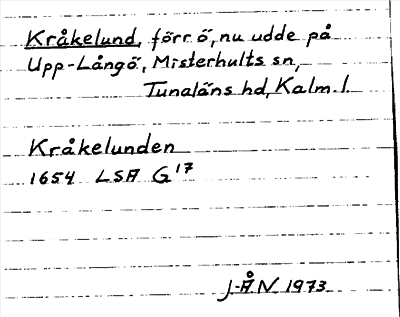 Kråkelund, förr ö, nu udde på
Upp-Långö, Misterhults sn,
Tunaläns hd, Kalm. l.
Kråkelunden
1654 LSA G17
J-ÅN 1973